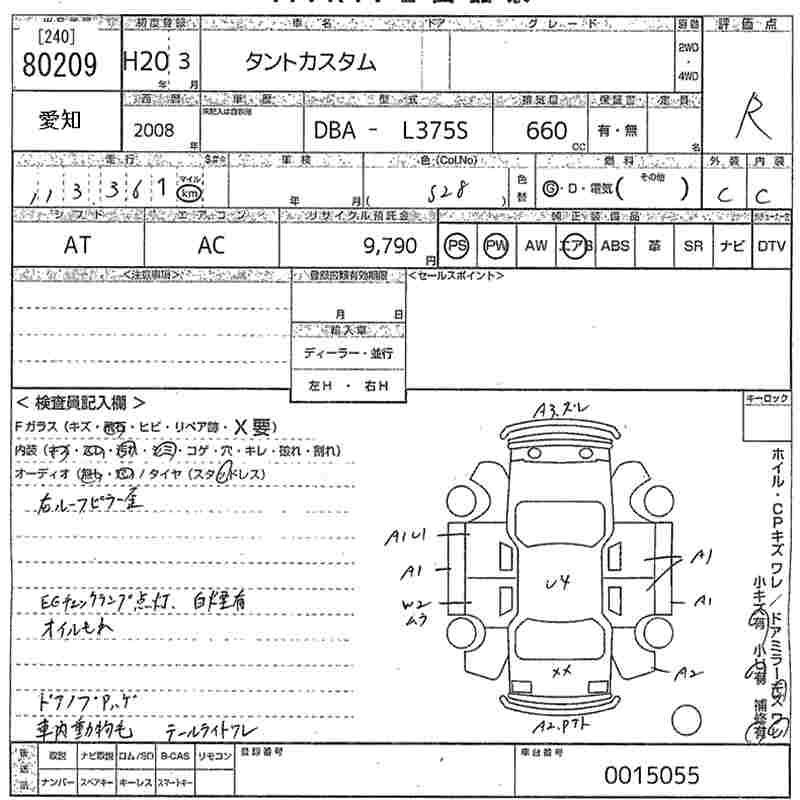 [240]
80209
初度登録
車名
ドア
グレード
評価点
H20 3
年 月
タントカスタム
2WD
4WD
R
愛知
西暦
車歴
型式
排気量
保証書
定員
2008 年
DBA - L375S
660 CC
有・無
名
走行
車検
色(Col.No)
燃料
外装
内装
113,361
マイル
km
年 月
( S28 )
色替
G・D・電気( その他 )
C C
シフト
エアコン
リサイクル預託金
純正装備品
AT
AC
9,790 円
PS PW AW エアB ABS 革 SR ナビ DTV
<注意事項>
登録書類有効期限
<セールスポイント>
月 日
輸入車
ディーラー・並行
左H ・ 右H
< 検査員記入欄 >
キーロック
Fガラス (キズ・飛石・ヒビ・リペア跡・X要)
内装 (キズ・汚れ・シミ・コゲ・穴・キレ・破れ・割れ)
オーディオ (無し・ ) / タイヤ (スタッドレス)
右ルーフピラー歪
EGチェックランプ点灯. 白煙有
オイルもれ
ドアノブPハゲ
車内動物毛 テールライトワレ
A3.ズレ
A1 U1
A1
A1
U4
W2
ムラ
A1
XX
A2
A2.Pテト
ホイル・CPキズ ワレ / ドアミラーキズ ワレ
小キズ有 小凹有 補修有
後送品
取説 ナビ取説 ロム/SD B-CAS リモコン
登録番号
車台番号
ナンバー スペアキー キーレス スマートキー
0015055